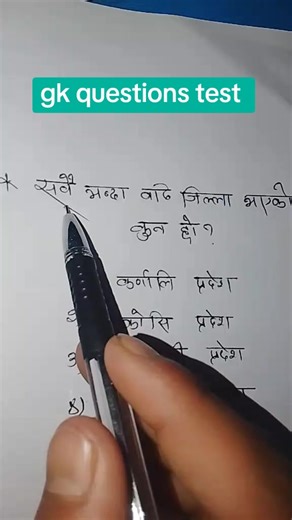 gk questions test
* सवै भन्दा वाढि जिल्ला भएको
कुन हो?
कर्णालि प्रदेश
कोसि प्रदेश
प्रदेश
४)